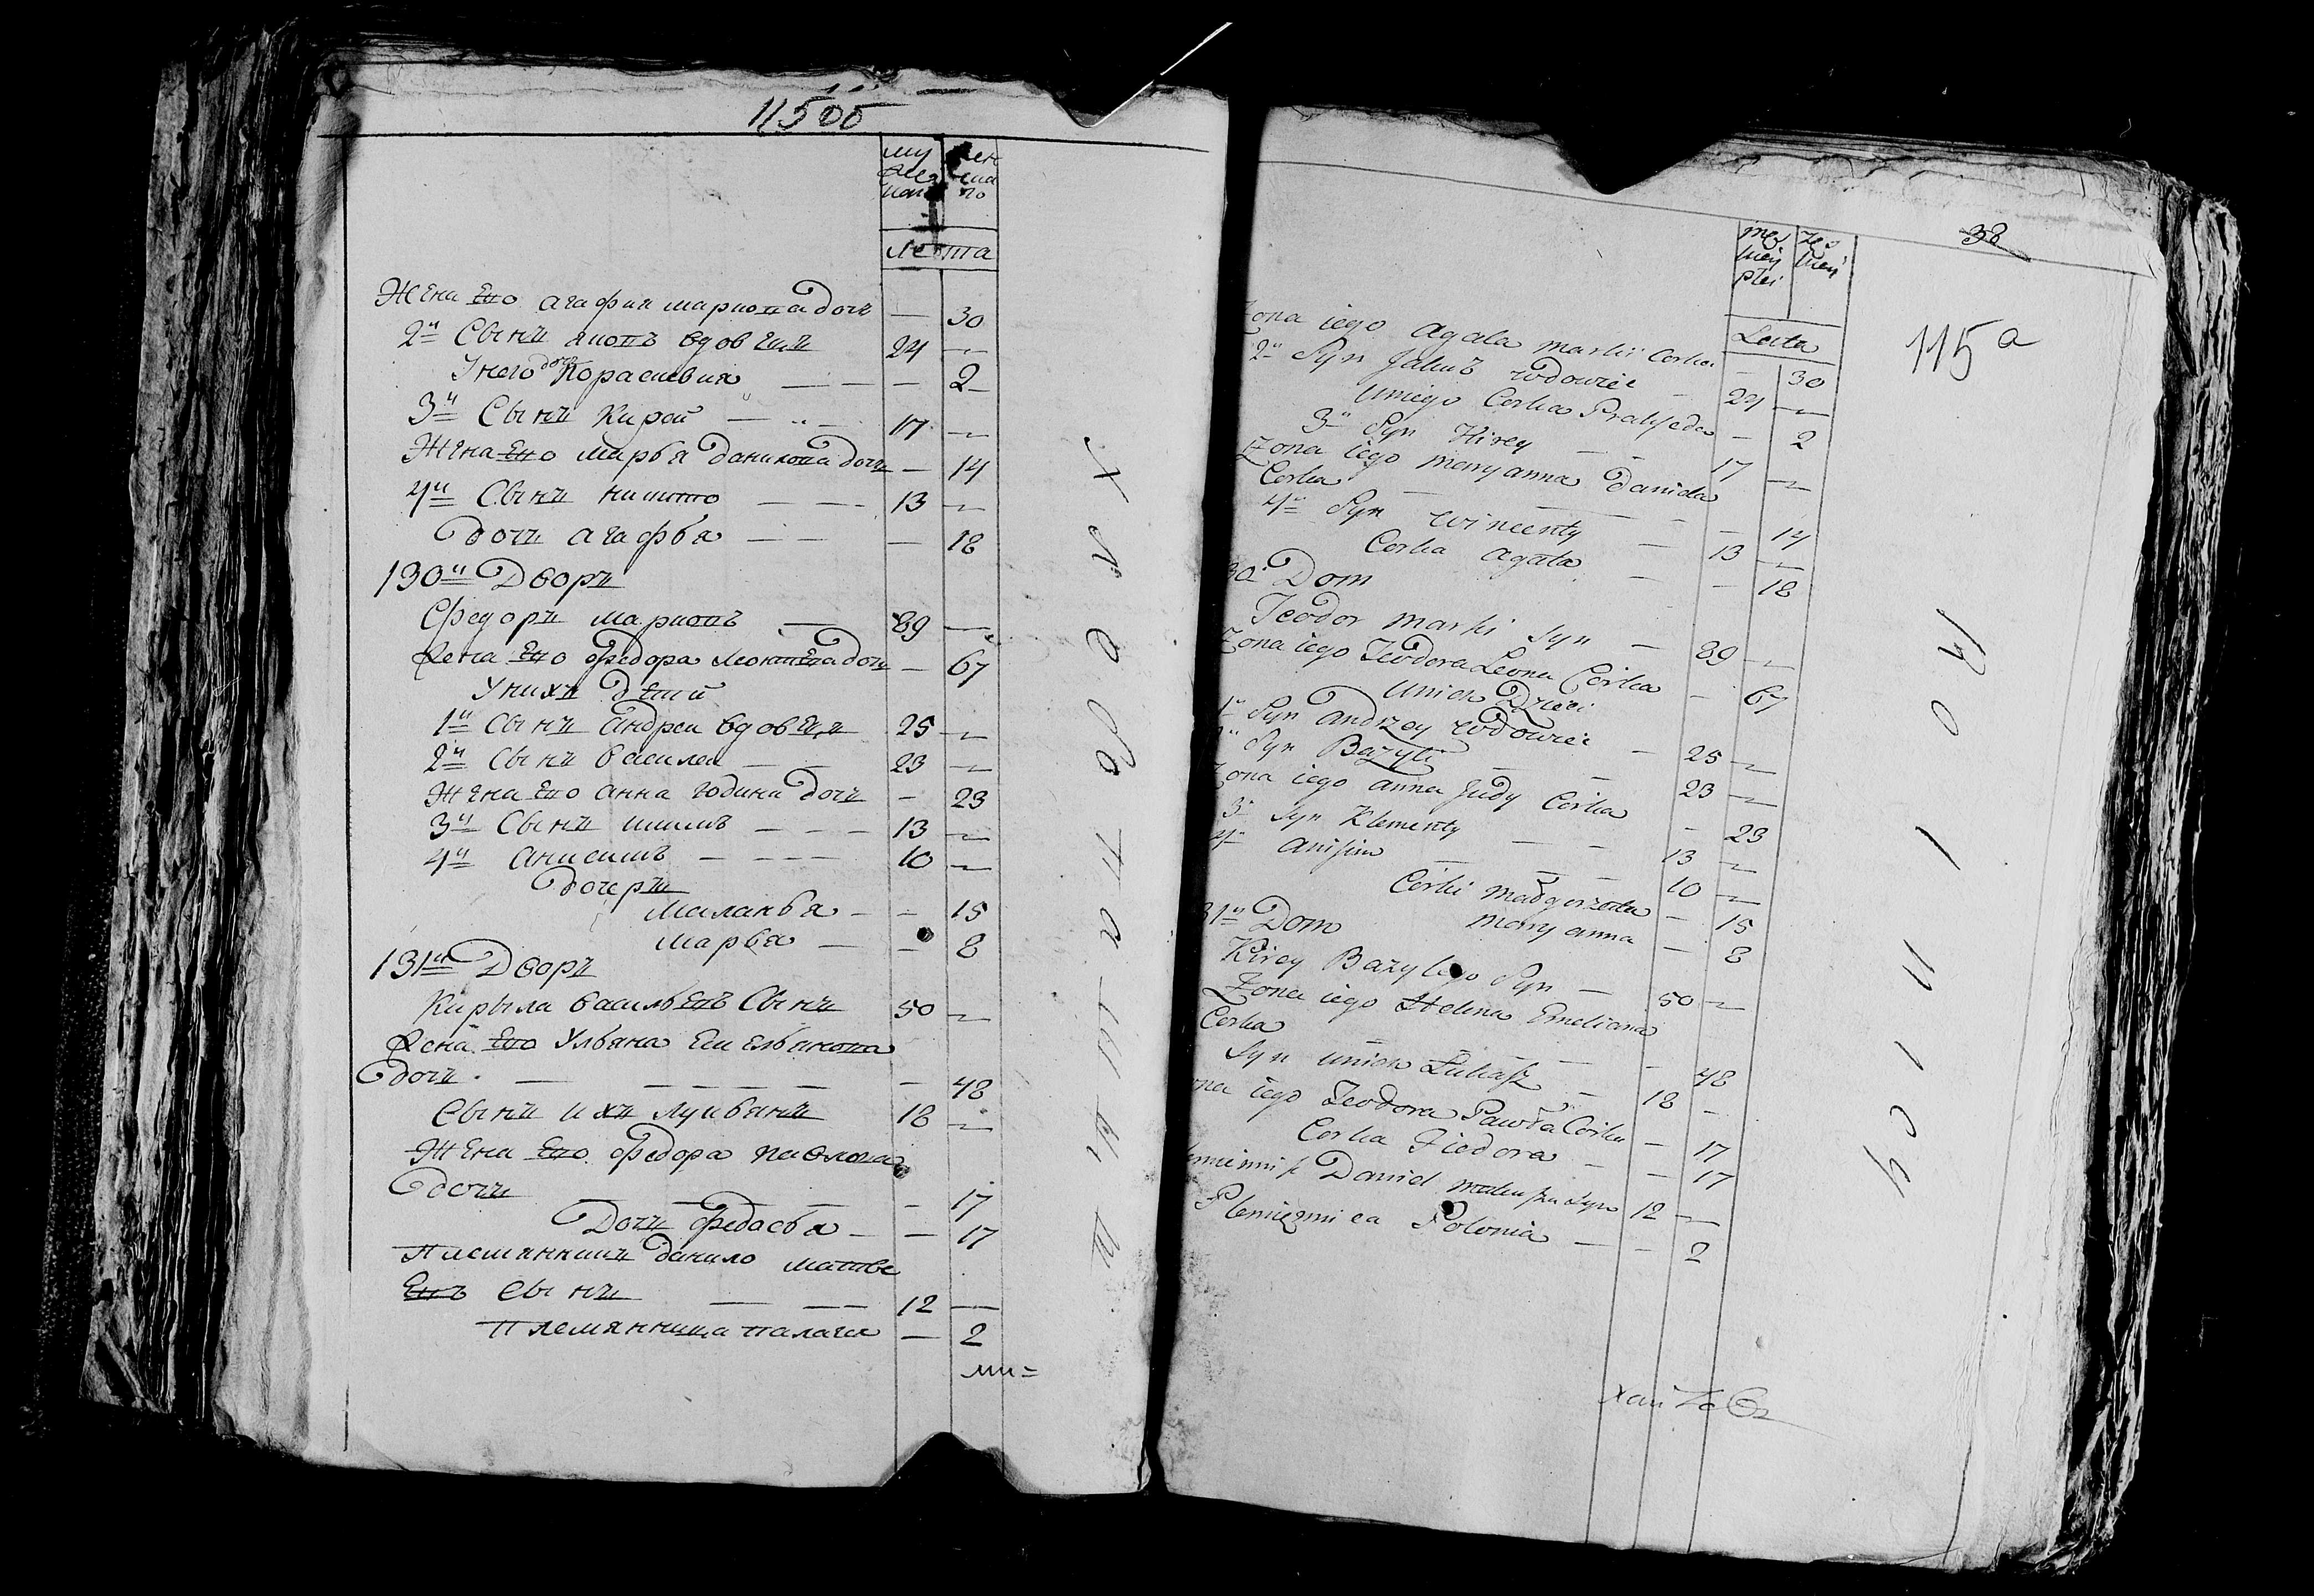 11500
му жен
жес ска
каго го
Лета
Жена Его агафия маркова дочь — 30
2й Сынъ яковъ вдовецъ 24 —
У него дочь Парасковия — — — 2
3й Сынъ Кирей — 17 —
Жена Его марья данилова дочь — 14
4й Сынъ никито — — 13 —
дочь агафья — — — 18
130й Дворъ
Федоръ марковъ — 89 —
Жена Его федора леонтева дочь — 67
У нихъ дети
1й Сынъ андреи вдовецъ 25 —
2й Сынъ василеи — — 23 —
Жена Его анна юдина дочь — 23
3й Сынъ климъ — — — 13 —
4й анисимъ — — — 10 —
дочери
маланья — — 15
марья — — 8
131й Дворъ
Кирыла васильевъ Сынъ 50 —
Жена Его Ульяна Емельянова
дочь — — — — — 48
Сынъ ихъ лукьянъ 18 —
Жена Его федора павлова
дочь — — — 17
Дочь федосья — — 17
племянникъ данило матве
Евъ Сынъ — — — 12 —
племянница палагея — 2
Хребпт
38
115a
męz zes
kiey kiey
płci
Leita
Zona iego Agata Marki Corka — 30
2й Syn Jakub wdowiec 24 —
Uniego Corka Praxeda — 2
3й Syn Kirey — — 17 —
Zona iego Maryanna Daniela
Corka — — — — 14
4й Syn Wincenty — 13 —
Corka Agata — — 18
30й Dom
Teodor Marki Syn — 89 —
Zona iego Teodora Leona Corka — 67
Unich Dzieci
1й Syn Andrzey wdowiec — 25 —
Syn Bazyli — — 23 —
Zona iego Anna Judy Corka — 23
3й Syn Klementy — — 13 —
4й Anisim — — — 10 —
Corki Małgorzata — 15
Maryanna — 8
31й Dom
Kirey Bazylego Syn — 50 —
Zona iego Helena Emeliana
Corka — — 48
Syn unich Łukasz — 18 —
ona iego Teodora Pawła Corka — 17
Corka Fiedora — — 17
Daniel Mateusza Syn 12 —
Plemięnnica Polonia — — 2